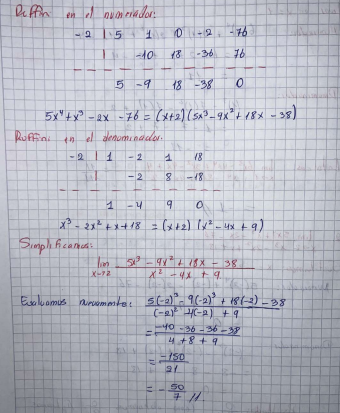 Ruffini en el numerador:
-2 | 5 1 0 -2 -76
| -10 18 -36 76
5 -9 18 -38 0
5x⁴+x³-2x-76=(x+2)(5x³-9x²+18x-38)
Ruffini en el denominador:
-2 | 1 -2 1 18
| -2 8 -18
1 -4 9 0
x³-2x²+x+18=(x+2)(x²-4x+9)
Simplificamos:
lim 5x³-9x²+18x-38
x→-2 x²-4x+9
Evaluamos nuevamente: 5(-2)³-9(-2)³+18(-2)-38
(-2)²-4(-2)+9
= -40-36-36-38
4+8+9
= -150
21
= - 50
7 //